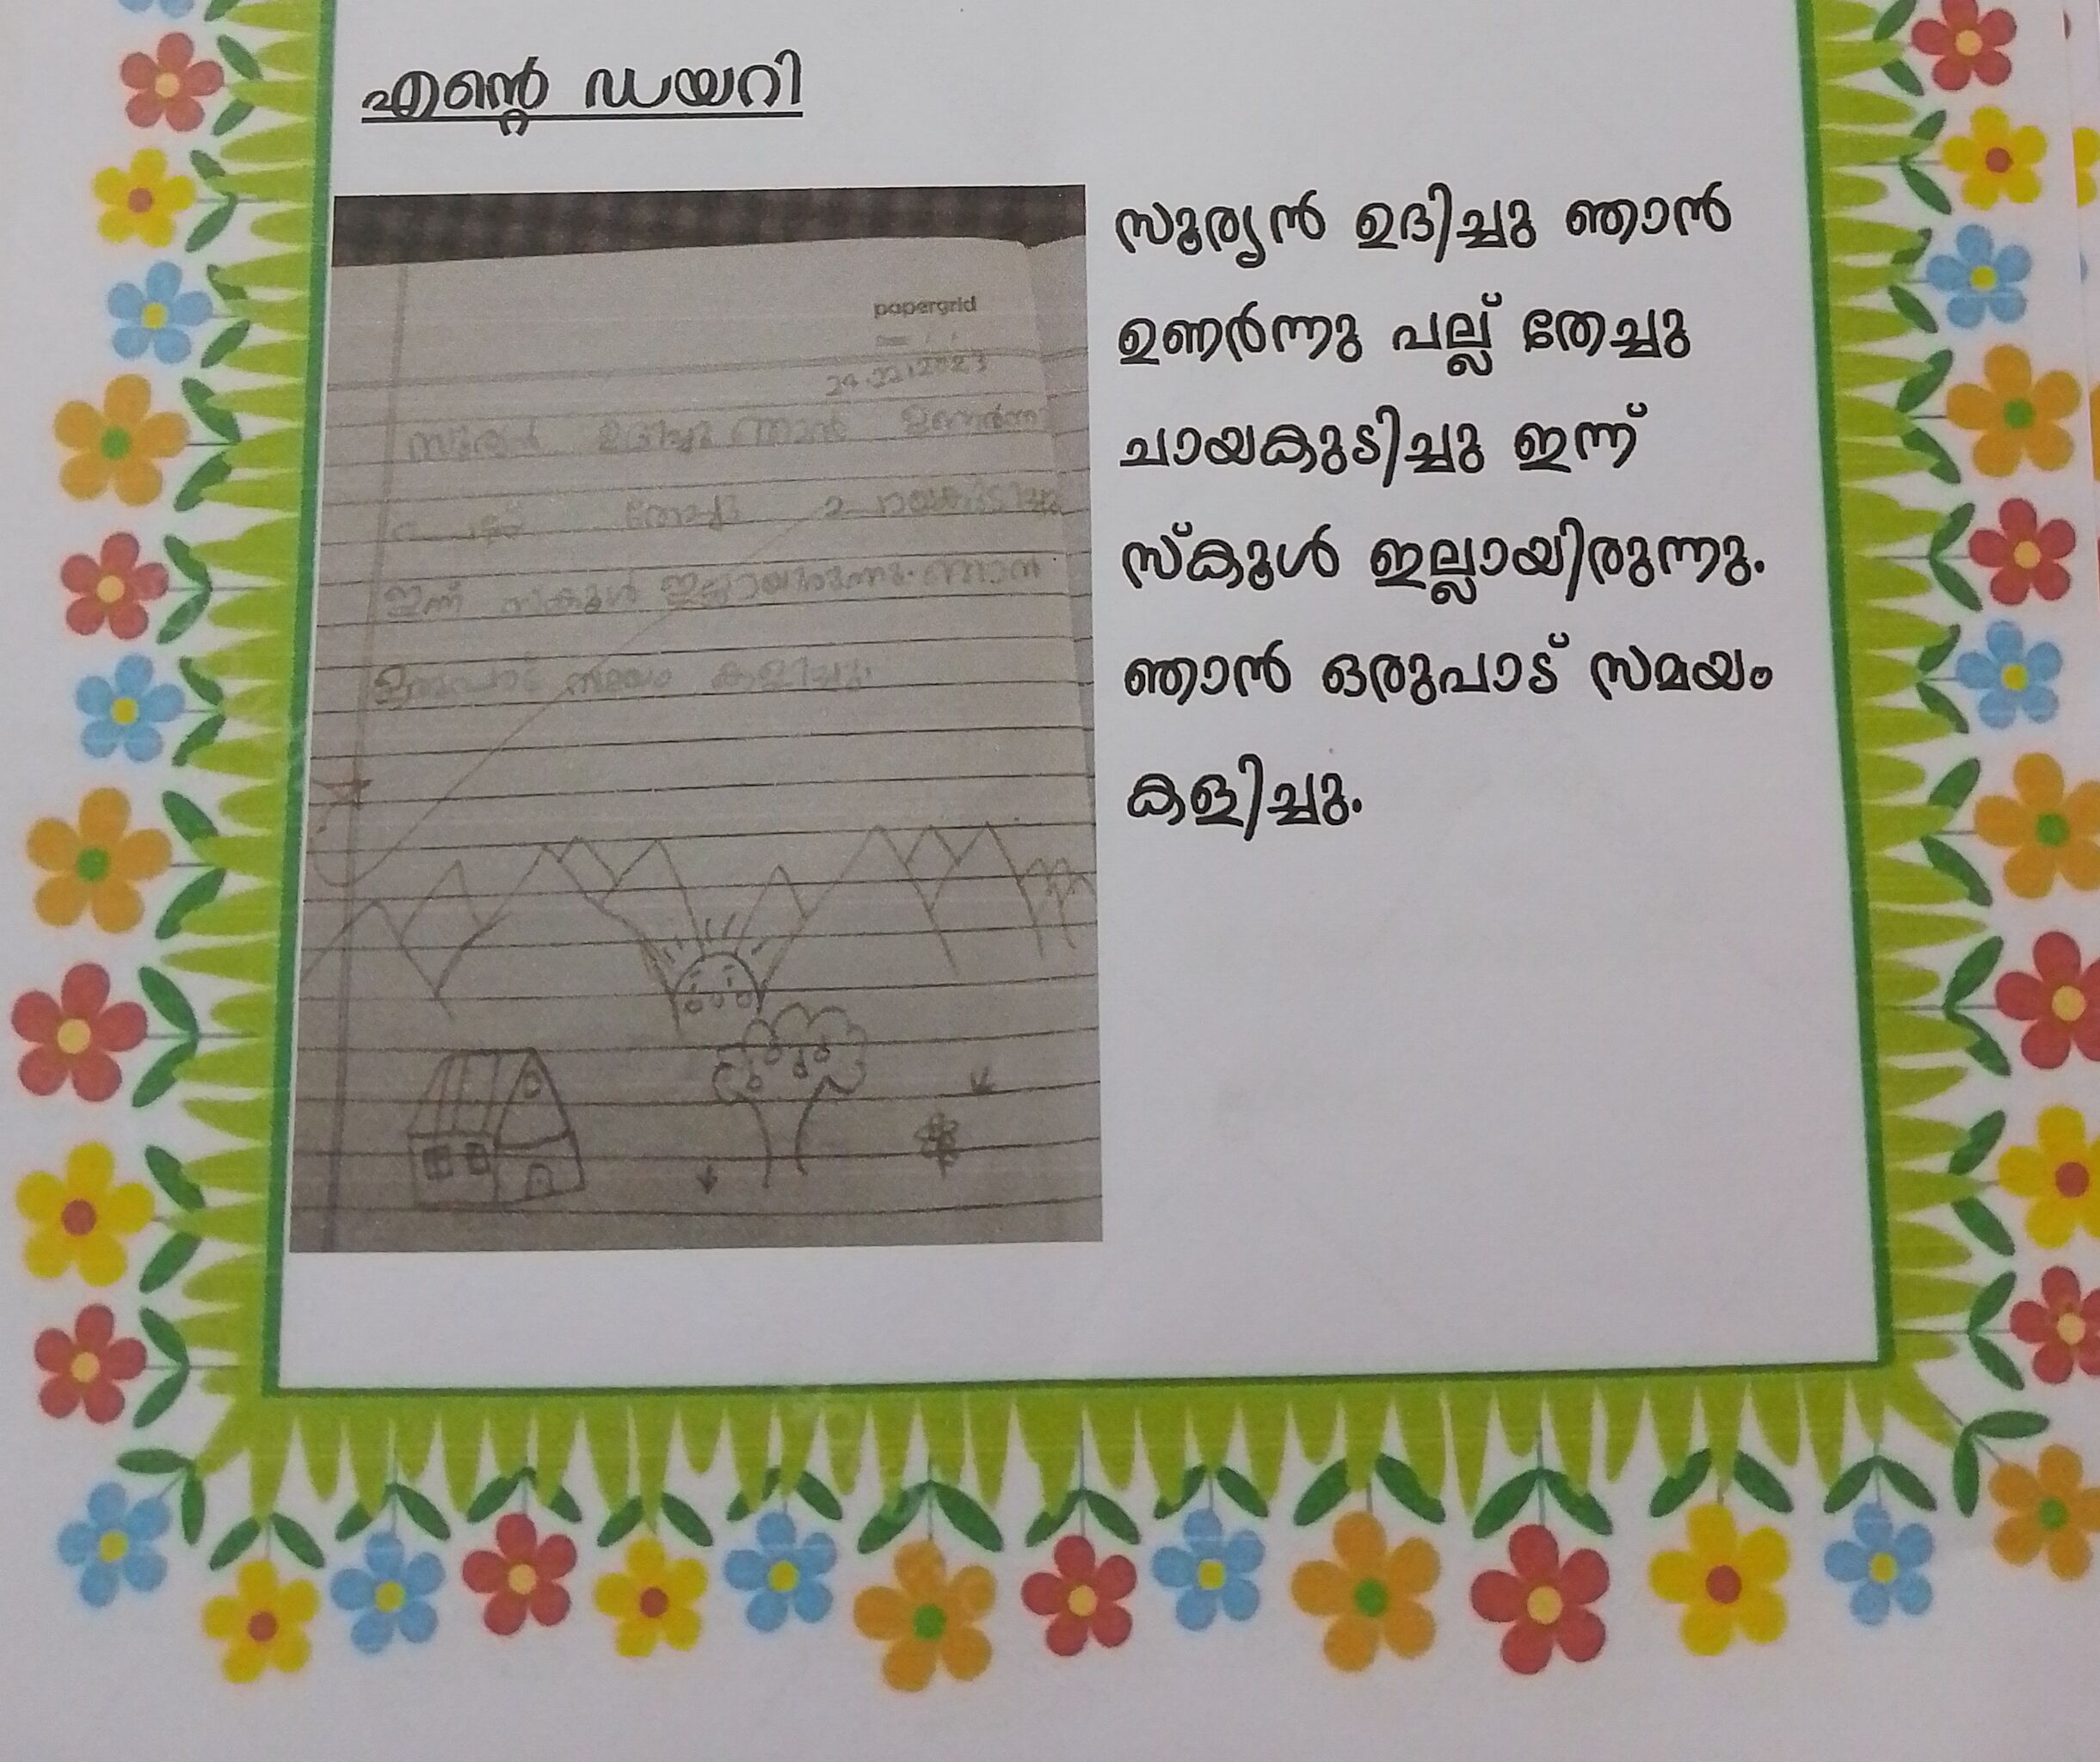 എന്റെ ഡയറി
papergrid
സൂര്യൻ ഉദിച്ചു ഞാൻ ഉണർന്നു
പല്ല് തേച്ചു ചായകുടിച്ചു
ഇന്ന് സ്കൂൾ ഇല്ലായിരുന്നു. ഞാൻ
ഒരുപാട് സമയം കളിച്ചു.
സൂര്യൻ ഉദിച്ചു ഞാൻ
ഉണർന്നു പല്ല് തേച്ചു
ചായകുടിച്ചു ഇന്ന്
സ്കൂൾ ഇല്ലായിരുന്നു.
ഞാൻ ഒരുപാട് സമയം
കളിച്ചു.